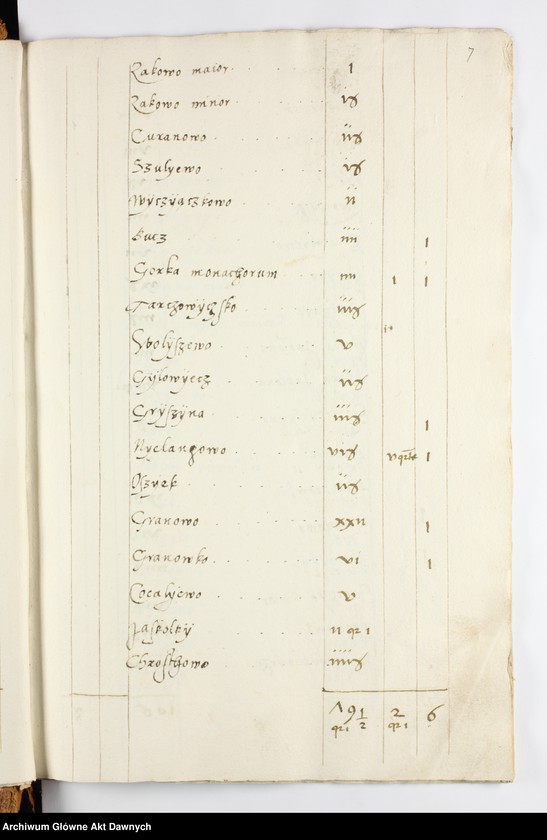 7
Rakowo maior . . . . I
Rakowo minor . . . . iɣ
Curanowo . . . . iiɣ
Szulyewo . . . . iɣ
Wyczÿączkowo . . . ii
Kucz . . . . iiii I
Gorka monachorum . . iiii I I
Tarchowÿsko . . . iiiɣ
Wolÿszewo . . . v
Gÿlowyecz . . . iiɣ
Grÿszÿna . . . iiiɣ I
Nyelangowo . . . viɣ v qrte I
. . . iiɣ
Granowo . . . xxii I
Granowko . . . vi I
Cocalÿewo . . . v
Jaskolky . . . ii qr i
Chrosthowo . . . iiiiɣ
79 1/2 qr i 2 qr i 6
Archiwum Główne Akt Dawnych